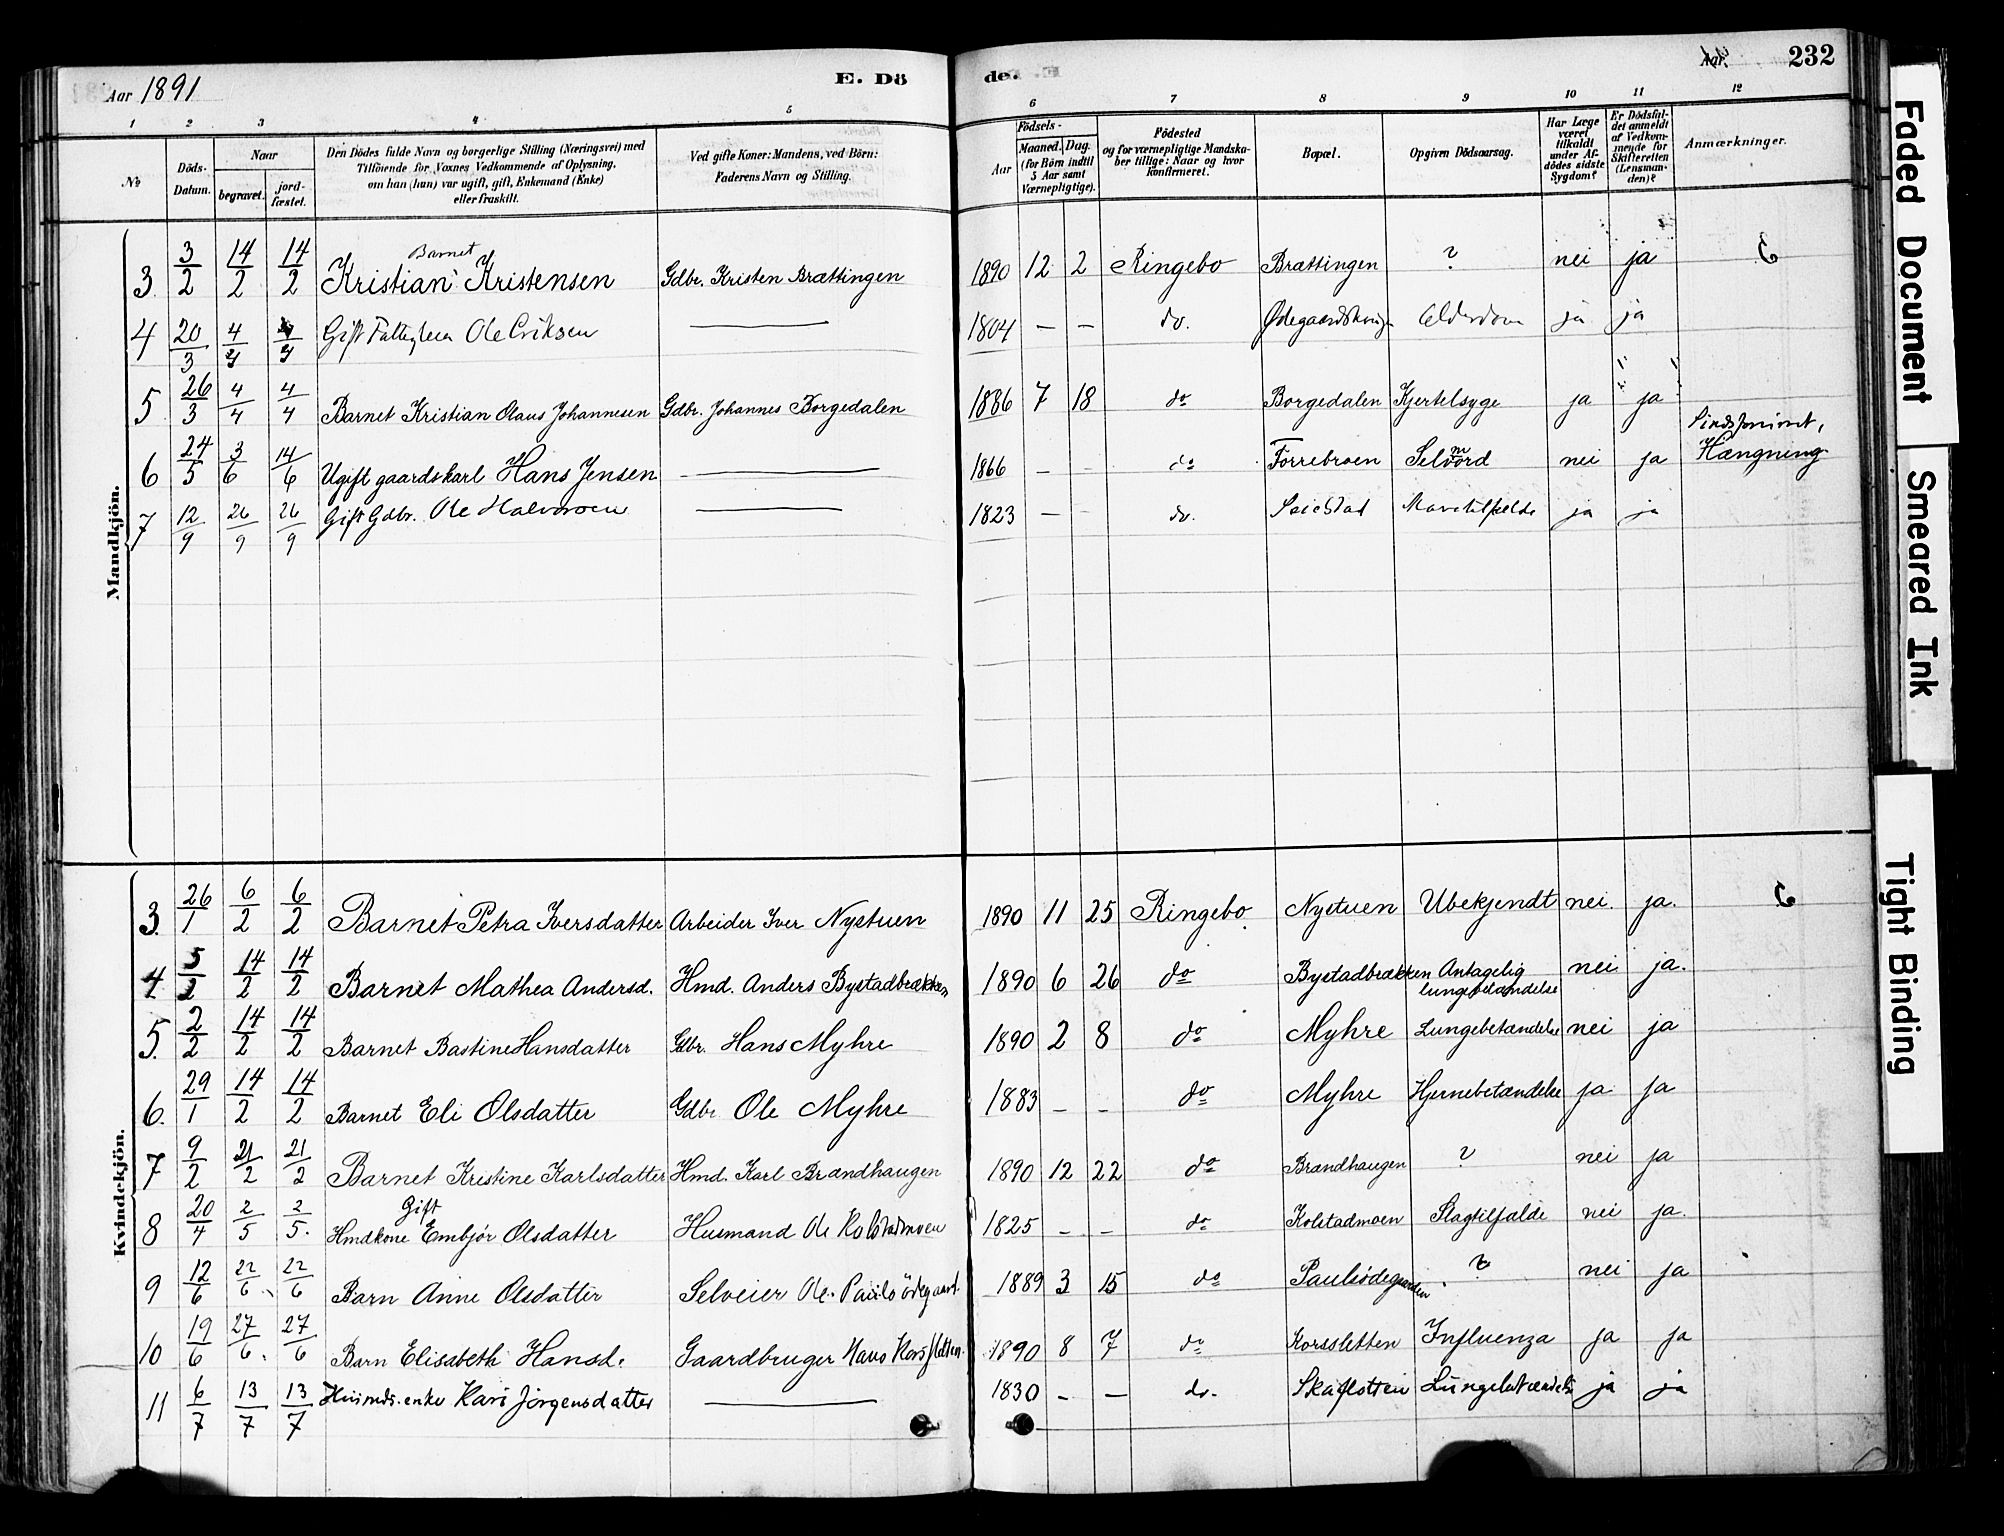 Aar 1891
E. Dö
de.
Aar
232
1 2 3 4 5 6 7 8 9 10 11 12
No
Döds-Datum.
Naar
begravet.
jord-fæstet.
Den Dödes fulde Navn og borgerlige Stilling (Næringsvei) med
Tilföiende for Voxnes Vedkommende af Oplysning,
om han (hun) var ugift, gift, Enkemand (Enke)
eller fraskilt.
Ved gifte Koner: Mandens, ved Börn:
Faderens Navn og Stilling.
Födsels-
Aar
Maaned.
Dag.
(for Börn indtil
5 Aar samt
Værnepligtige).
Födested
og for værnepligtige Mandska-
ber tillige: Naar og hvor
konfirmeret.
Bopæl.
Opgiven Dödsaarsag.
Har Læge
været
tilkaldt
under Af-
dödes sidste
Sygdom?
Er Dödsfal-
det anmeldt
af Vedkom-
mende for
Skifteretten
(Lensman-
den)?
Anmærkninger.
Mandkjön.
3. 3/2 14/2 14/2 Barnet Kristian Kristensen Gdbr. Kristen Brættingen 1890 12 2 Ringebo Brættingen ? nei ja
4 20/3 4/4 4/4 Gift Ole Eriksen — 1804 — — do. Alderdom ja ja
5 26/3 4/4 4/4 Barnet Kristian Olaus Johannesen Gdbr. Johannes Borgedalen 1886 7 18 do Borgedalen Kjertelsyge ja ja
6 24/5 3/6 14/6 Ugift gaardskarl Hans Jensen — 1866 — — do Forrebroen Selvmord nei ja Hængning
7 12/9 26/9 26/9 Gift Gdbr. Ole Halvorsen — 1823 — — do. ja ja
Kvindekjön.
3. 26/1 6/2 6/2 Barnet Petra Iversdatter Arbeider Iver Nystuen 1890 11 25 Ringebo Nystuen Ubekjendt nei. ja.
4 5/2 14/2 14/2 Barnet Mathea Andersd. Hmd. Anders Bystadbrækken 1890 6 26 do Bystadbrækken Antagelig lungebetændelse nei ja.
5. 2/2 14/2 14/2 Barnet Bastine Hansdatter Gdbr. Hans Myhre 1890 2 8 do Myhre Lungebetændelse nei ja
6. 29/1 14/2 14/2 Barnet Eli Olsdatter Gdbr Ole Myhre 1883 — — do Myhre Hjernebetændelse ja ja
7 9/2 21/2 21/2 Barnet Kristine Karlsdatter Hmd. Karl Brændhaugen 1890 12 22 do Brændhaugen ? nei ja
8 20/4 2/5 2/5. Gift Hmdkone Embjør Olsdatter Husmand Ole Kolstadmoen 1825 — — do Kolstadmoen Slagtilfælde nei ja.
9 12/6 22/6 22/6 Barn Anne Olsdatter Selveier Ole Paulsödegaard. 1889 3 15 do Paulsödegaarden ? nei ja
10 19/6 27/6. 27/6 Barn Elisabeth Hansd. Gaardbruger Hans Korssletten 1890 8 7 do Korssletten Influenza ja ja
11 6/7 13/7 13/7 Husmds. enke Kari Jörgensdatter — 1830 — — do. Lungebetændelse ja ja
Faded Document
Smeared Ink
Tight Binding